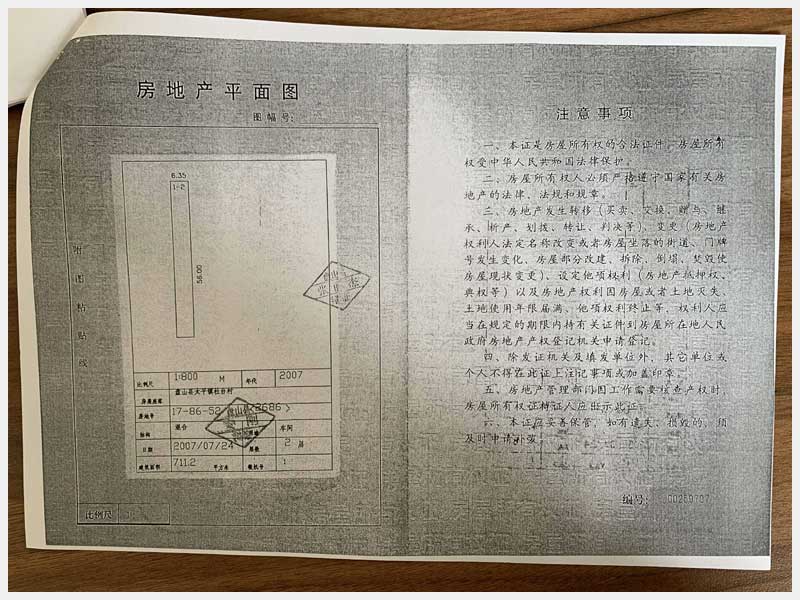 房地产平面图
图幅号:
附图粘贴线
6.35
1-2
56.00
比例尺 1:800 M 年代 2007
房屋座落 盘山县太平镇杜台村
房地号 17-86-52 2686
结构 混合 车间
日期 2007/07/24 层数 2 层
建筑面积 711.2 平方米 微机号 1
比例尺
注意事项
一、本证是房屋所有权的合法证件，房屋所有
权受中华人民共和国法律保护。
二、房屋所有权人必须严格遵守国家有关房
地产的法律、法规和规章。
三、房地产发生转移（买卖、交换、赠与、继
承、析产、划拨、转让、判决等）、变更（房地产
权利人法定名称改变或者房屋坐落的街道、门牌
号发生变化、房屋部分改建、拆除、倒塌、焚毁使
房屋现状变更）、设定他项权利（房地产抵押权、
典权等）以及房地产权利因房屋或者土地灭失、
土地使用年限届满、他项权利终止等，权利人应
当在规定的期限内持有关证件到房屋所在地人民
政府房地产产权登记机关申请登记。
四、除发证机关及填发单位外，其它单位或
个人不得在此证上注记事项或加盖印章。
五、房地产管理部门因工作需要核查产权时，
房屋所有权证持证人应出示此证。
六、本证应妥善保管，如有遗失、损毁的，须
及时申请补发。
编号: